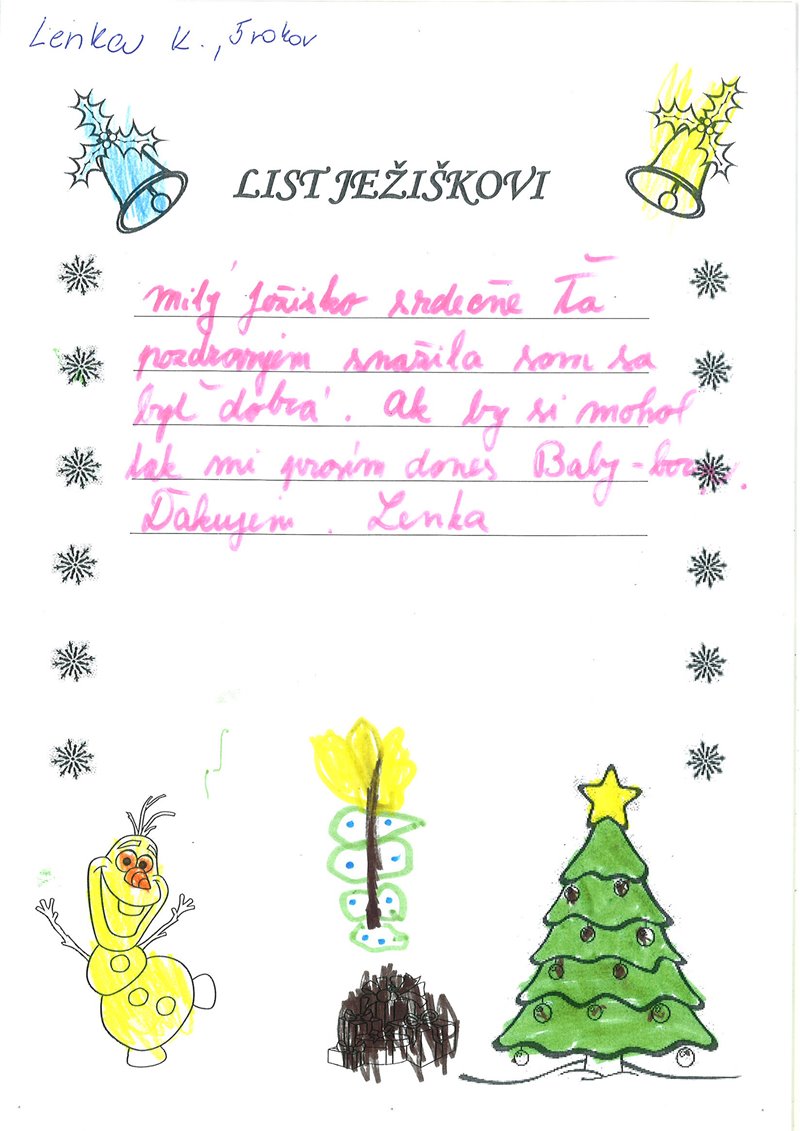 Lenka K., 5 rokov
LIST JEŽIŠKOVI
Milý Ježisko srdečne Ťa
pozdravujem snažila som sa
byť dobrá. Ak by si mohol
tak mi prosím dones Baby-born.
Ďakujem. Lenka